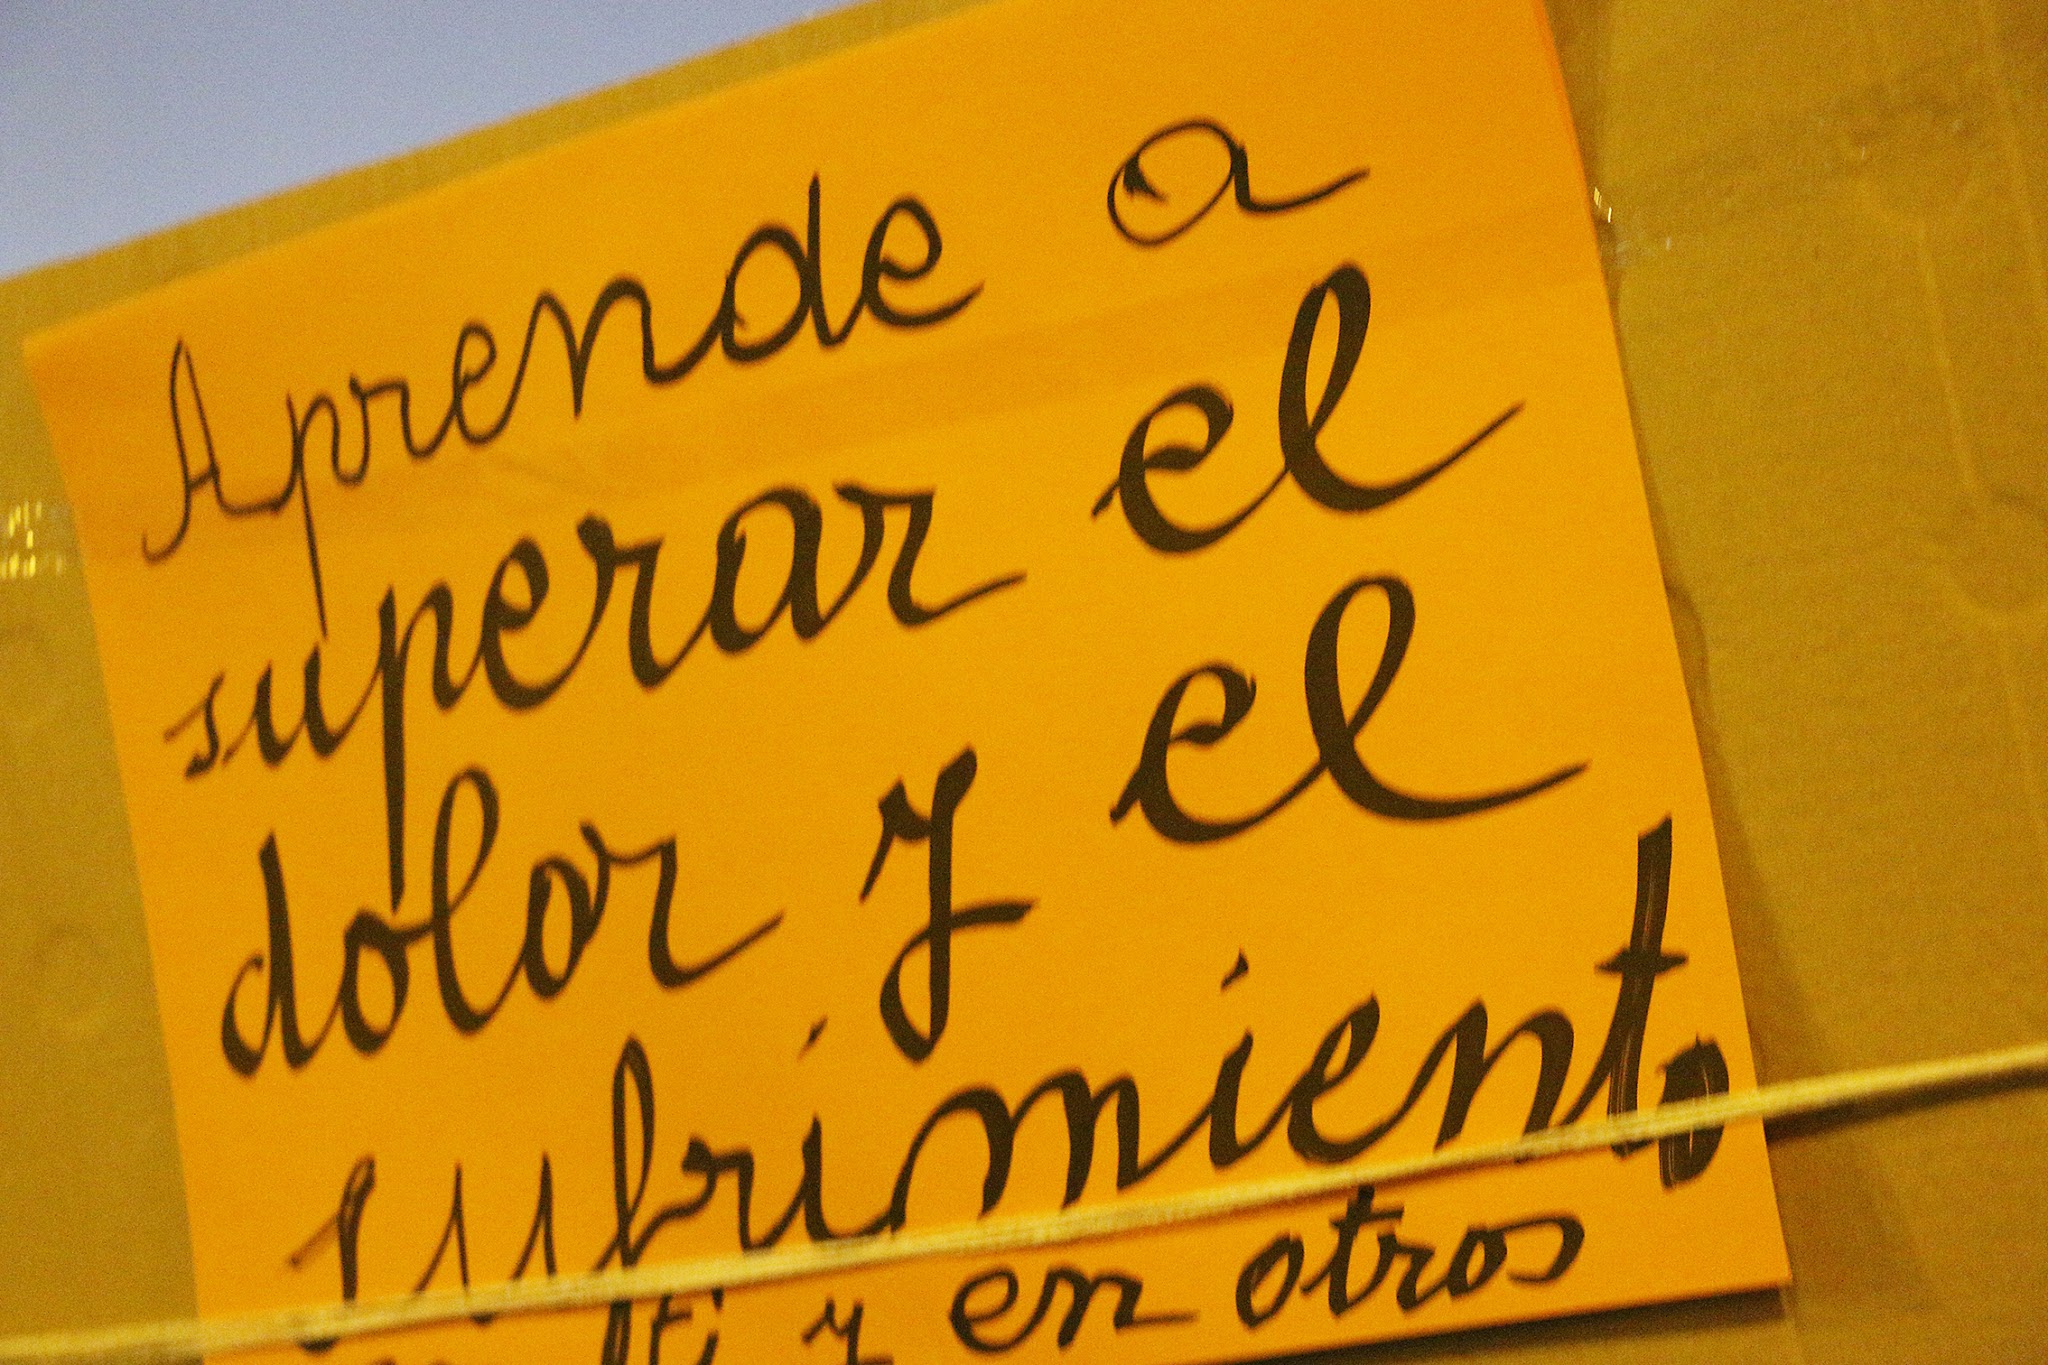 Aprende a
superar el
dolor y el
sufrimiento
ti y en otros